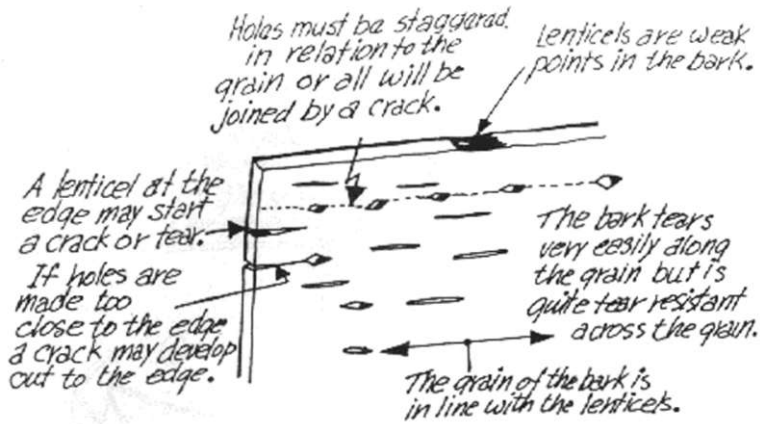 Holes must be staggered
in relation to the
grain or all will be
joined by a crack.
Lenticels are weak
points in the bark.
A lenticel at the
edge may start
a crack or tear.
If holes are
made too
close to the edge
a crack may develop
out to the edge.
The bark tears
very easily along
the grain but is
quite tear resistant
across the grain.
The grain of the bark is
in line with the lenticels.